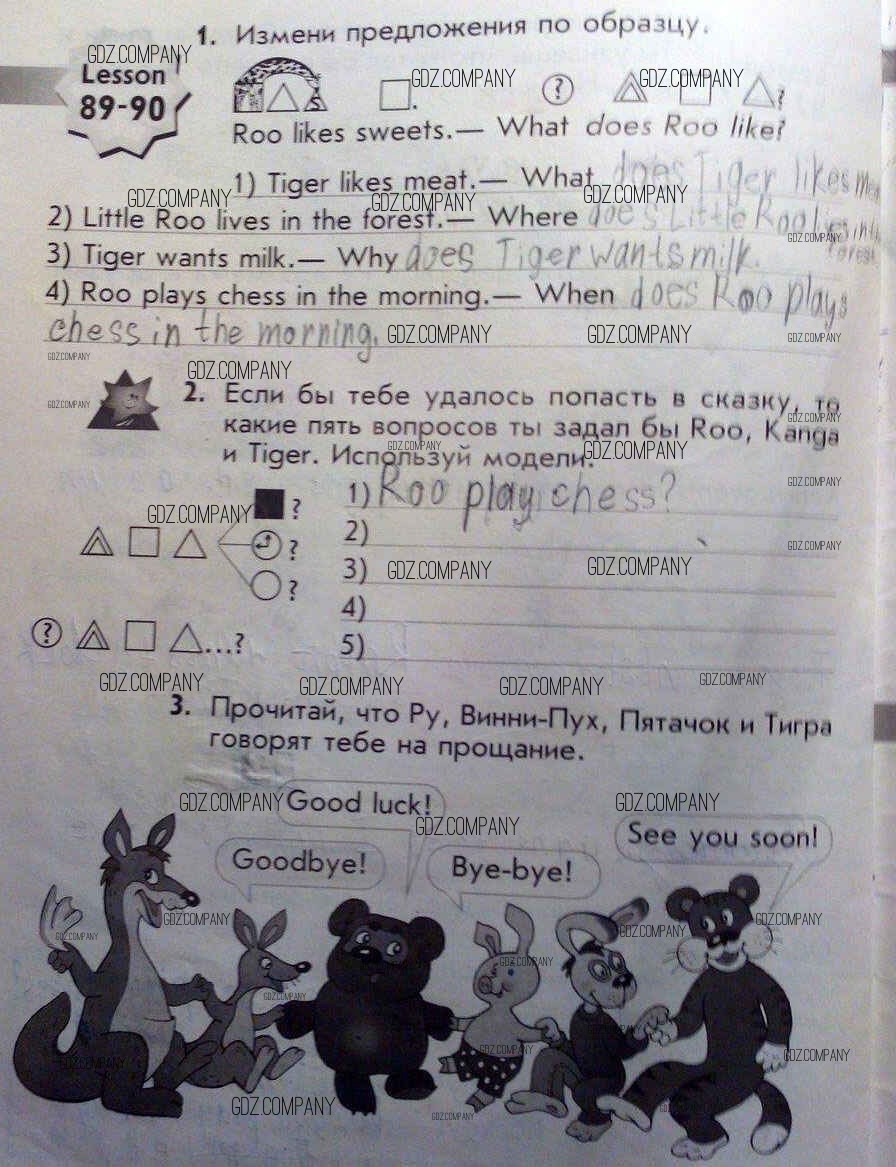 1. Измени предложения по образцу.
Lesson
89-90
Roo likes sweets.— What does Roo like?
1) Tiger likes meat.— What does Tiger likes
2) Little Roo lives in the forest.— Where does Little Roo
forest.
3) Tiger wants milk.— Why does Tiger wants milk.
4) Roo plays chess in the morning.— When does Roo plays
chess in the morning.
2. Если бы тебе удалось попасть в сказку, то
какие пять вопросов ты задал бы Roo, Kanga
и Tiger. Используй модели.
1) Roo play chess?
2)
3)
4)
5)
3. Прочитай, что Ру, Винни-Пух, Пятачок и Тигра
говорят тебе на прощание.
Good luck!
See you soon!
Goodbye!
Bye-bye!
GDZ.COMPANY